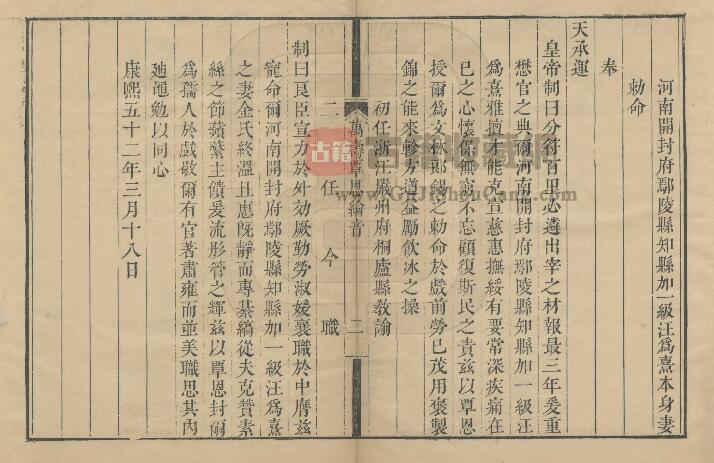 河南開封府鄢陵縣知縣加一級汪為熹本身妻
勅命
奉
天承運
皇帝制曰分符百里必遴出宰之材報最三年爰重
懋官之典爾河南開封府鄢陵縣知縣加一級汪
為熹雅擅才能克宣慈惠撫綏有要常深疾痛在
已之心懷保無窮不忘顧復斯民之責茲以覃恩
授爾為文林郎錫之勅命於戲前勞已茂用褒製
錦之能來軫方遒益勵飲冰之操
初任浙江嚴州府桐廬縣教諭
萬壽覃恩綸音
二
二任今職
制曰良臣宣力於外効厥勤勞淑媛襄職於中膺茲
寵命爾河南開封府鄢陵縣知縣加一級汪為熹
之妻金氏終溫且惠既靜而專綦縞從夫克贊素
絲之節蘋蘩主饋爰流彤管之輝茲以覃恩封爾
為孺人於戲敬爾有官著肅雍而並美職思其內
迪黽勉以同心
康熙五十二年三月十八日
古籍
www.GuJiShouCang.com